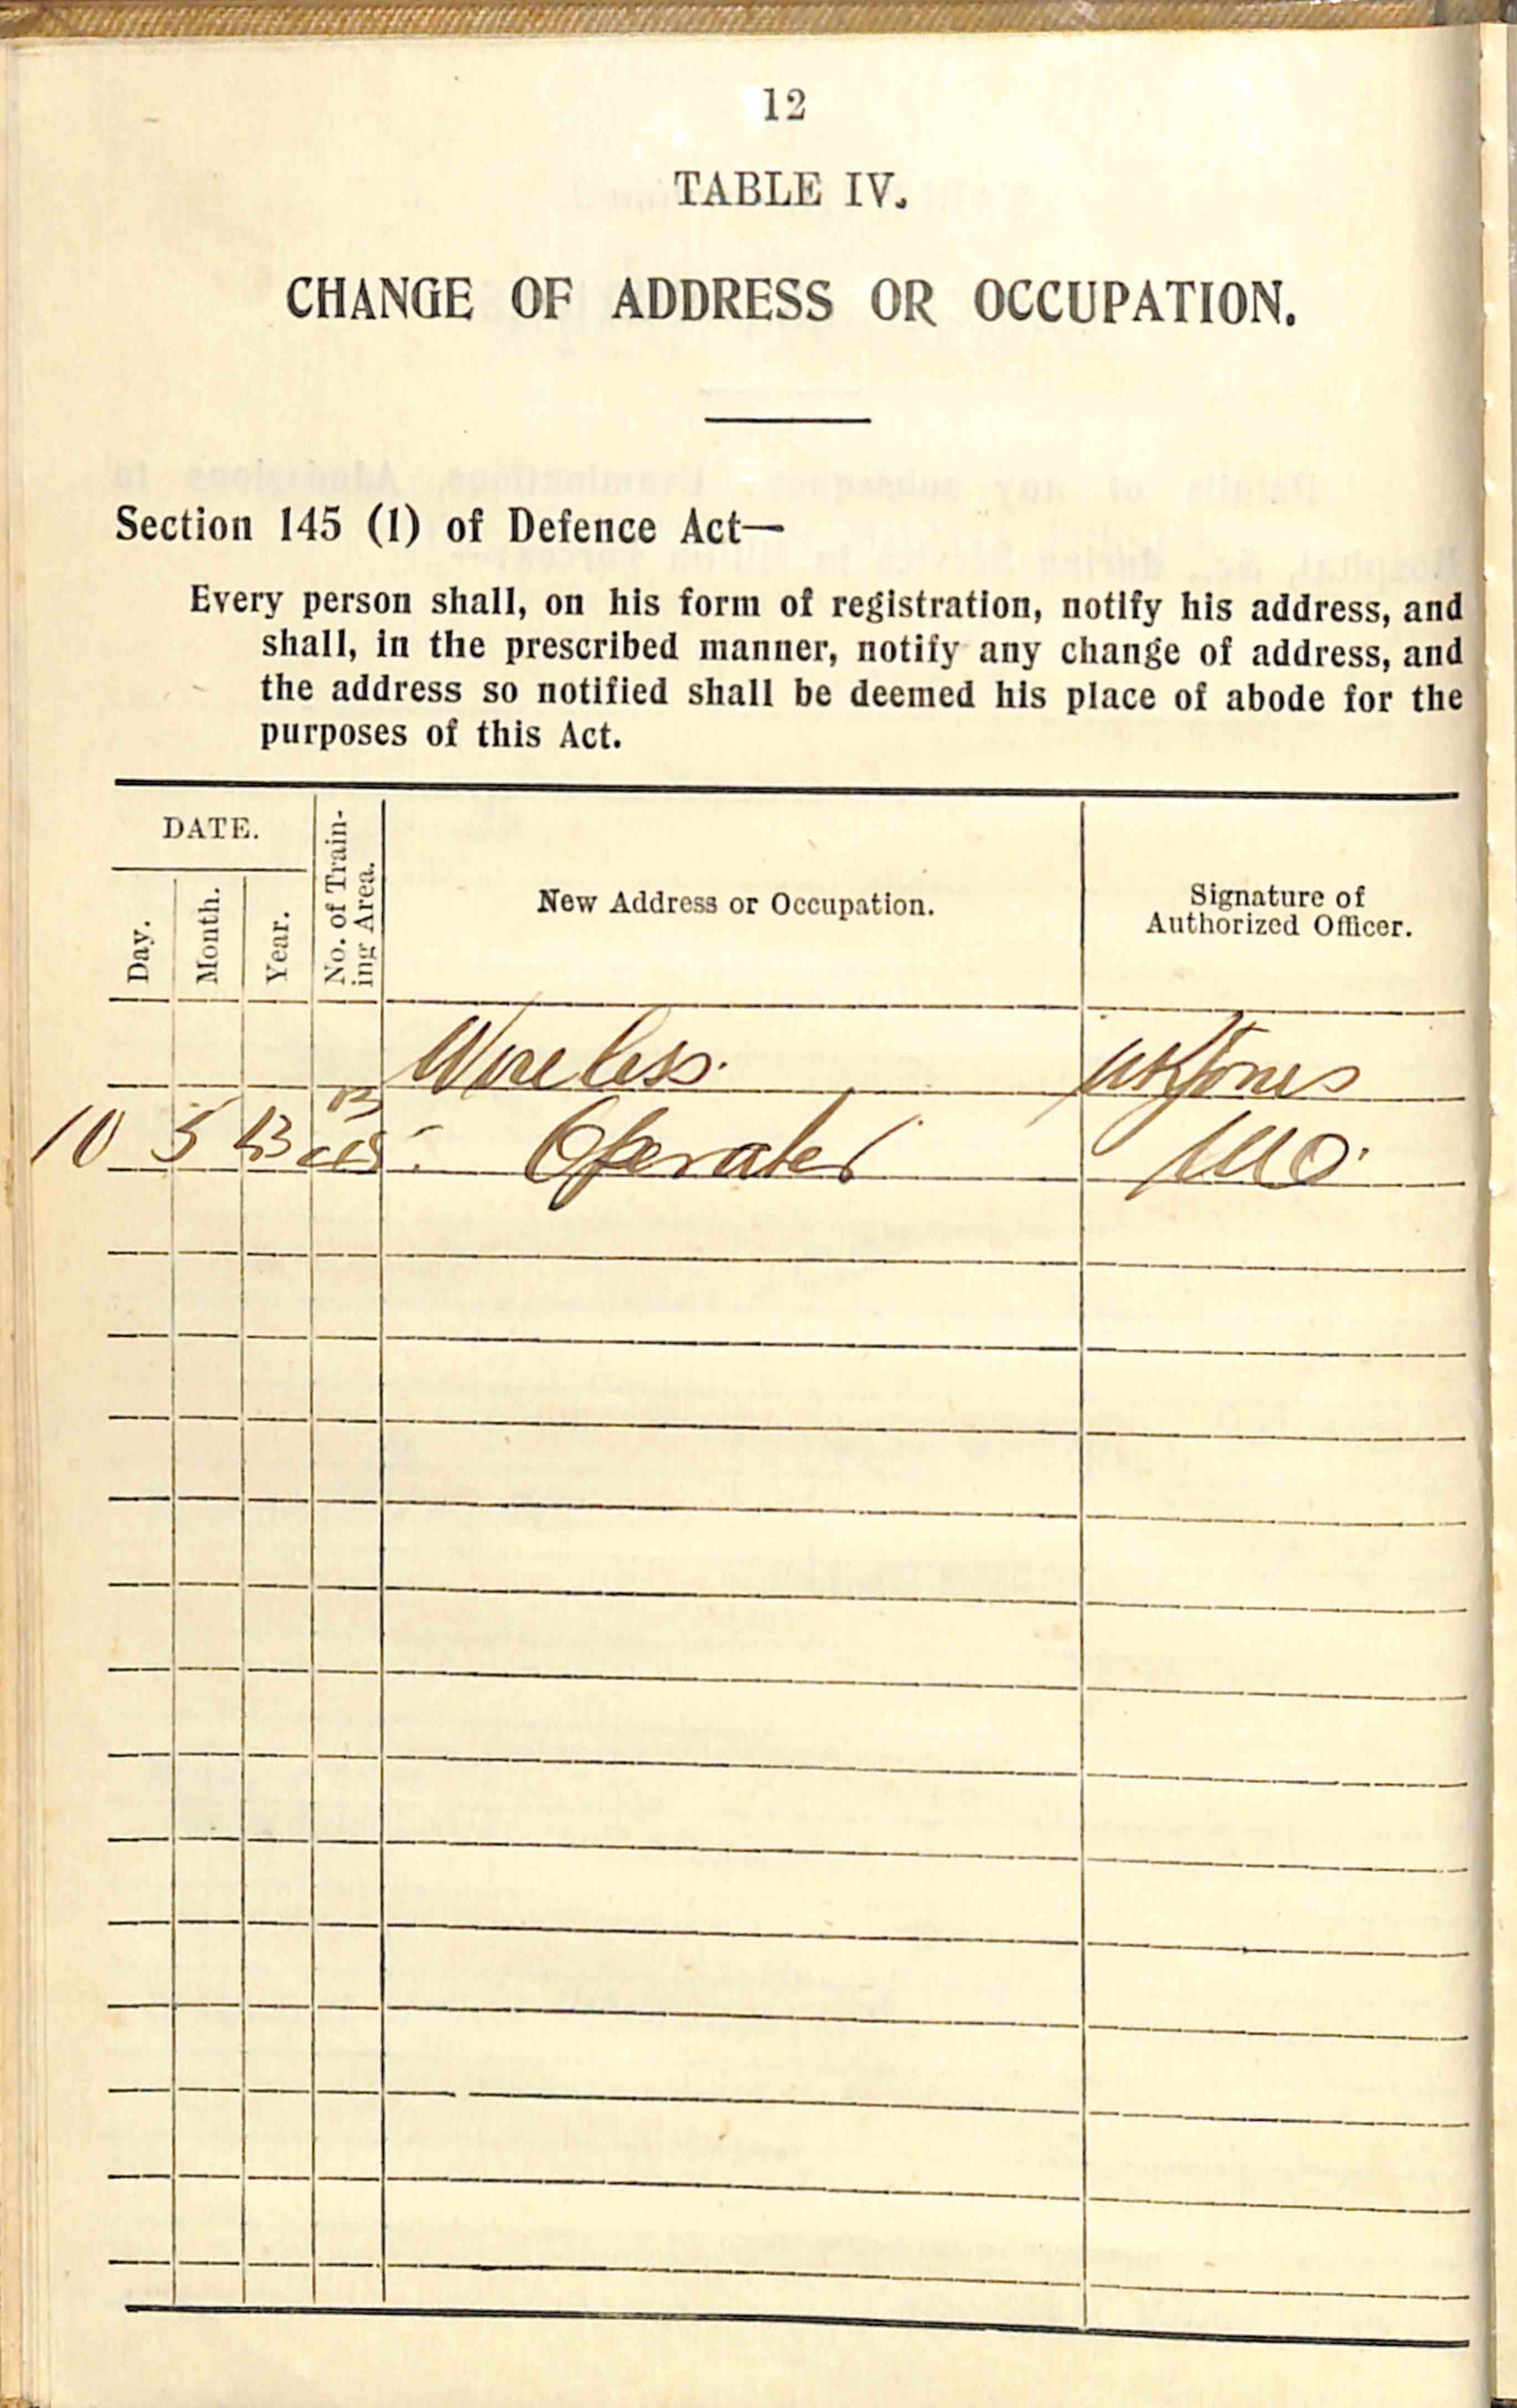 12
TABLE IV.
CHANGE OF ADDRESS OR OCCUPATION.
Section 145 (1) of Defence Act—
Every person shall, on his form of registration, notify his address, and
shall, in the prescribed manner, notify any change of address, and
the address so notified shall be deemed his place of abode for the
purposes of this Act.
DATE.
Day.
Month.
Year.
No. of Train-
ing Area.
New Address or Occupation.
Signature of
Authorized Officer.
Wireless. Jones
10 5 Operator